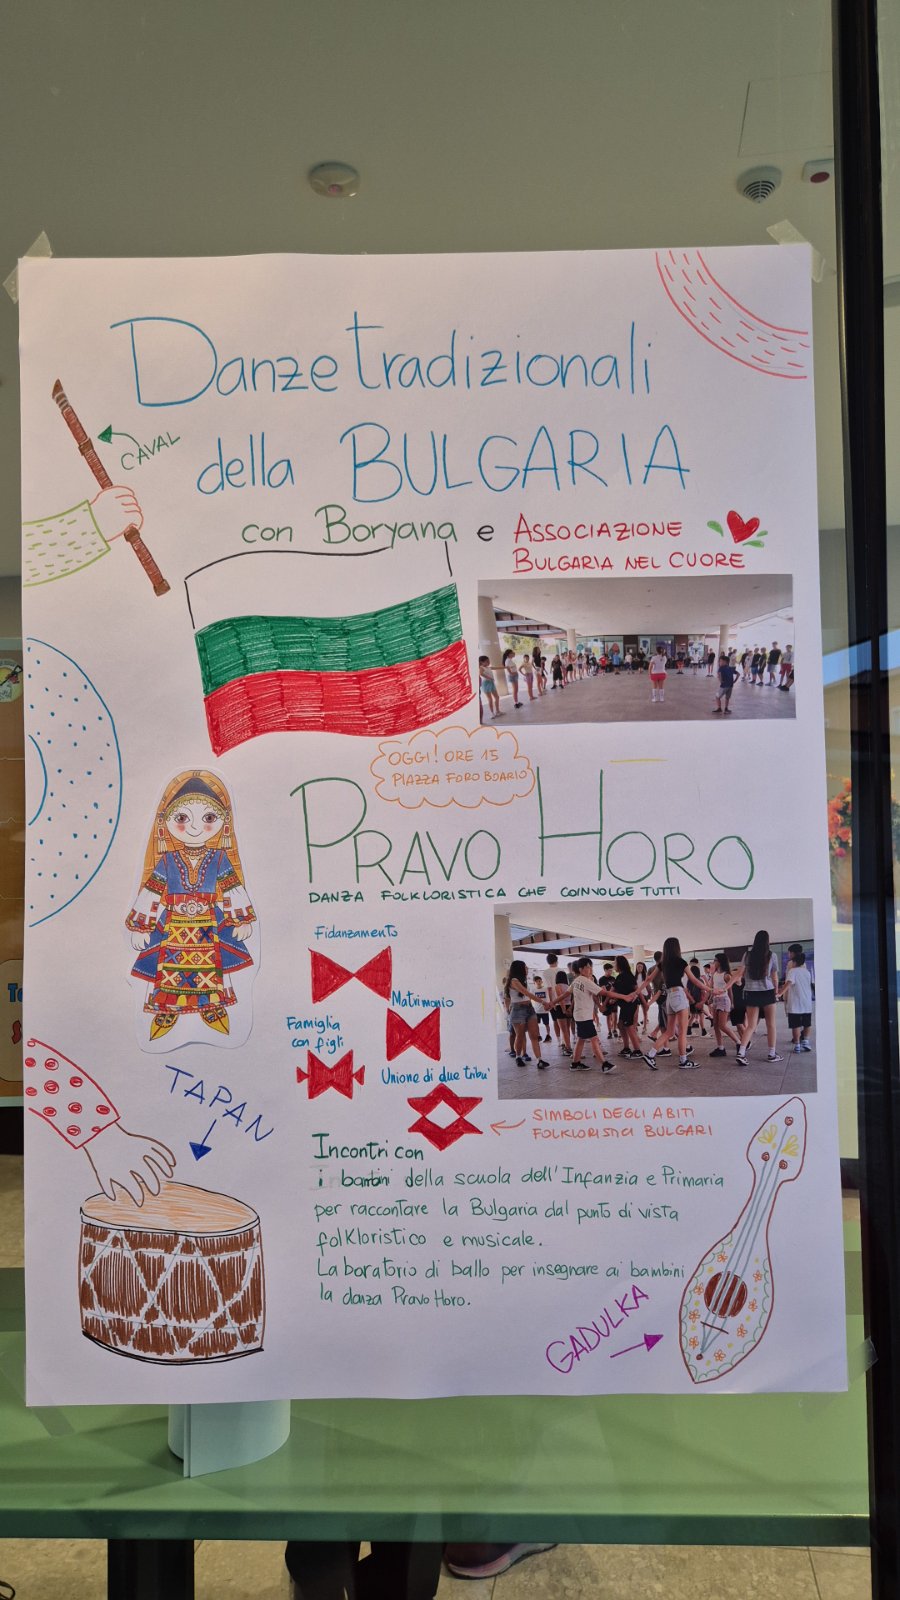 Danze tradizionali
della BULGARIA
CAVAL
con Boryana e ASSOCIAZIONE
BULGARIA NEL CUORE
OGGI! ORE 15
PIAZZA FORO BOARIO
PRAVO HORO
DANZA FOLKLORISTICA CHE COINVOLGE TUTTI
Fidanzamento
Matrimonio
Famiglia
con figli
Unione di due tribu'
SIMBOLI DEGLI ABITI
FOLKLORISTICI BULGARI
TAPAN
Incontri con
i bambini della scuola dell'Infanzia e Primaria
per raccontare la Bulgaria dal punto di vista
folkloristico e musicale.
Laboratorio di ballo per insegnare ai bambini
la danza Pravo Horo.
GADULKA